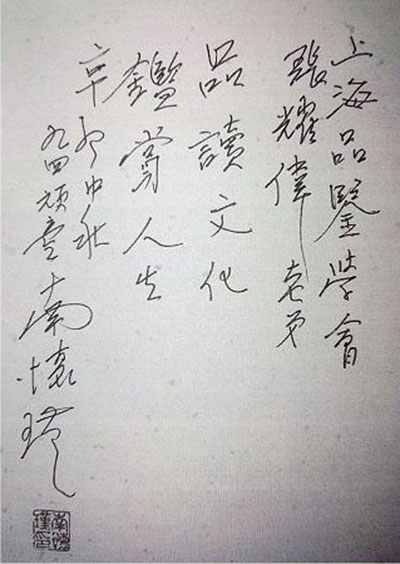 上海品鑒學會
張耀偉老弟
品讀文化
鑑賞人生
辛卯中秋
九四頑童南懷瑾
南懷瑾印